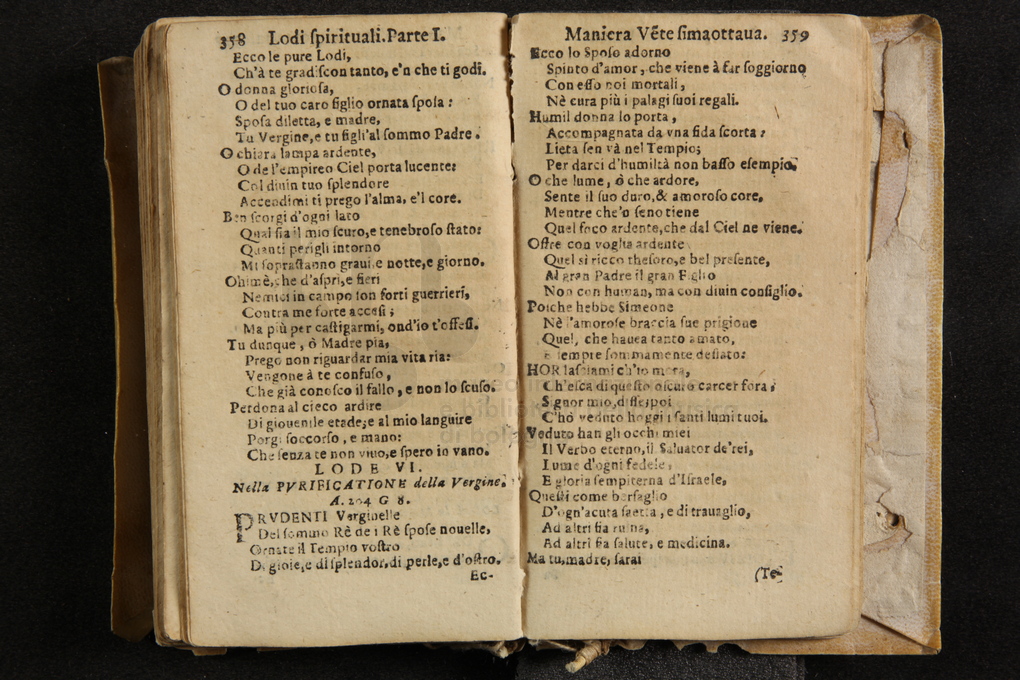 358 Lodi ſpirituali. Parte I.
Ecco le pure Lodi,
Ch'à te gradiſcon tanto, e'n che ti godi.
O donna glorioſa,
O del tuo caro figlio ornata ſpoſa:
Spoſa diletta, e madre,
Tu Vergine, e tu figli'al ſommo Padre.
O chiara lampa ardente,
O de l'empireo Ciel porta lucente:
Col diuin tuo ſplendore
Accendimi ti prego l'alma, e'l core.
Ben ſcorgi d'ogni lato
Qual ſia il mio ſcuro, e tenebroſo ſtato:
Quanti perigli intorno
Mi sopraſtanno graui, e notte, e giorno.
Ohimè, che d'aſpri, e fieri
Nemici in campo ſon forti guerrieri,
Contra me forte acceſi;
Ma più per caſtigarmi, ond'io t'offeſi.
Tu dunque, ò Madre pia,
Prego non riguardar mia vita ria:
Vengone à te confuſo,
Che già conoſco il fallo, e non lo ſcuſo.
Perdona al cieco ardire
Di giouenile etade, e al mio languire
Porgi ſoccorſo, e mano:
Che ſenza te non viuo, e ſpero in vano.
LODE VI.
Nella PVRIFICATIONE della Vergine.
A. 204 G 8.
PRVDENTI Verginelle
Del ſommo Rè de i Rè ſpoſe nouelle,
Ornate il Tempio voſtro
Di gioie, e di ſplendor, di perle, e d'oſtro.
Ec-
Maniera Vẽteſimaottaua. 359
Ecco lo Spoſo adorno
Spinto d'amor, che viene à far ſoggiorno
Con eſſo noi mortali,
Nè cura più i palagi ſuoi regali.
Humil donna lo porta,
Accompagnata da vna fida ſcorta:
Lieta ſen và nel Tempio;
Per darci d'humiltà non baſſo eſempio.
O che lume, ò che ardore,
Sente il ſuo duro, & amoroſo core,
Mentre che'n ſeno tiene
Quel foco ardente, che dal Ciel ne viene.
Offre con voglia ardente
Quel si ricco theſoro, e bel preſente,
Al gran Padre il gran Figlio
Non con human, ma con diuin conſiglio.
Poiche hebbe Simeone
Nè l'amoroſe braccia ſue prigione
Quel, che hauea tanto amato,
E ſempre ſommamente deſiato:
HOR laſciami ch'io mora,
Ch'eſca di queſto oſcuro carcer fora;
Signor mio, diſſe, poi
C'hò veduto hoggi i ſanti lumi tuoi.
Veduto han gli occhi miei
Il Verbo eterno, il Saluator de'rei,
Lume d'ogni fedele,
E gloria ſempiterna d'Iſraele,
Queſti come berſaglio
D'ogn'acuta ſaetta, e di trauaglio,
Ad altri fia ruina,
Ad altri fia ſalute, e medicina.
Ma tu, madre, ſarai
(Te-